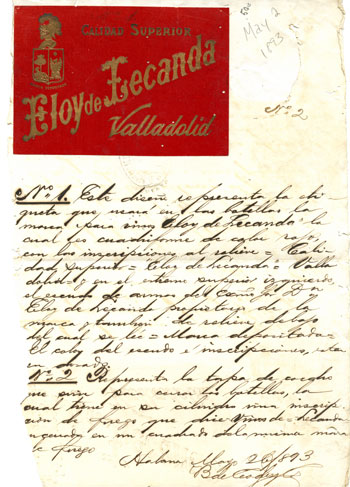 CALIDAD SUPERIOR
Eloy de Lecanda
Valladolid
May 2
1893
Nº 2
Nº 1. Este diseño representa la eti-
queta que usará en las botellas la
marca para vinos Eloy de Lecanda la
cual es cuadriforme de color rojo,
con las inscripciones al relieve = Cali-
dad Superior = Eloy de Lecanda = Valla-
dolid = y en el extremo superior izquierdo
el escudo de armas del Señor Dn
Eloy de Lecanda propietario de la
marca y tambien de relieve, debajo
del cual se lee = Marca depositada =
El color del escudo e inscripciones, estan
en dorado
Nº 2. Representa la tapa de corcho
que usan para cerrar las botellas, la
cual tiene en su cilindro una inscrip-
ción de fuego que dice Vinos de Lecanda
en un cuadrado de la misma
de fuego
Habana May 2 de 1893